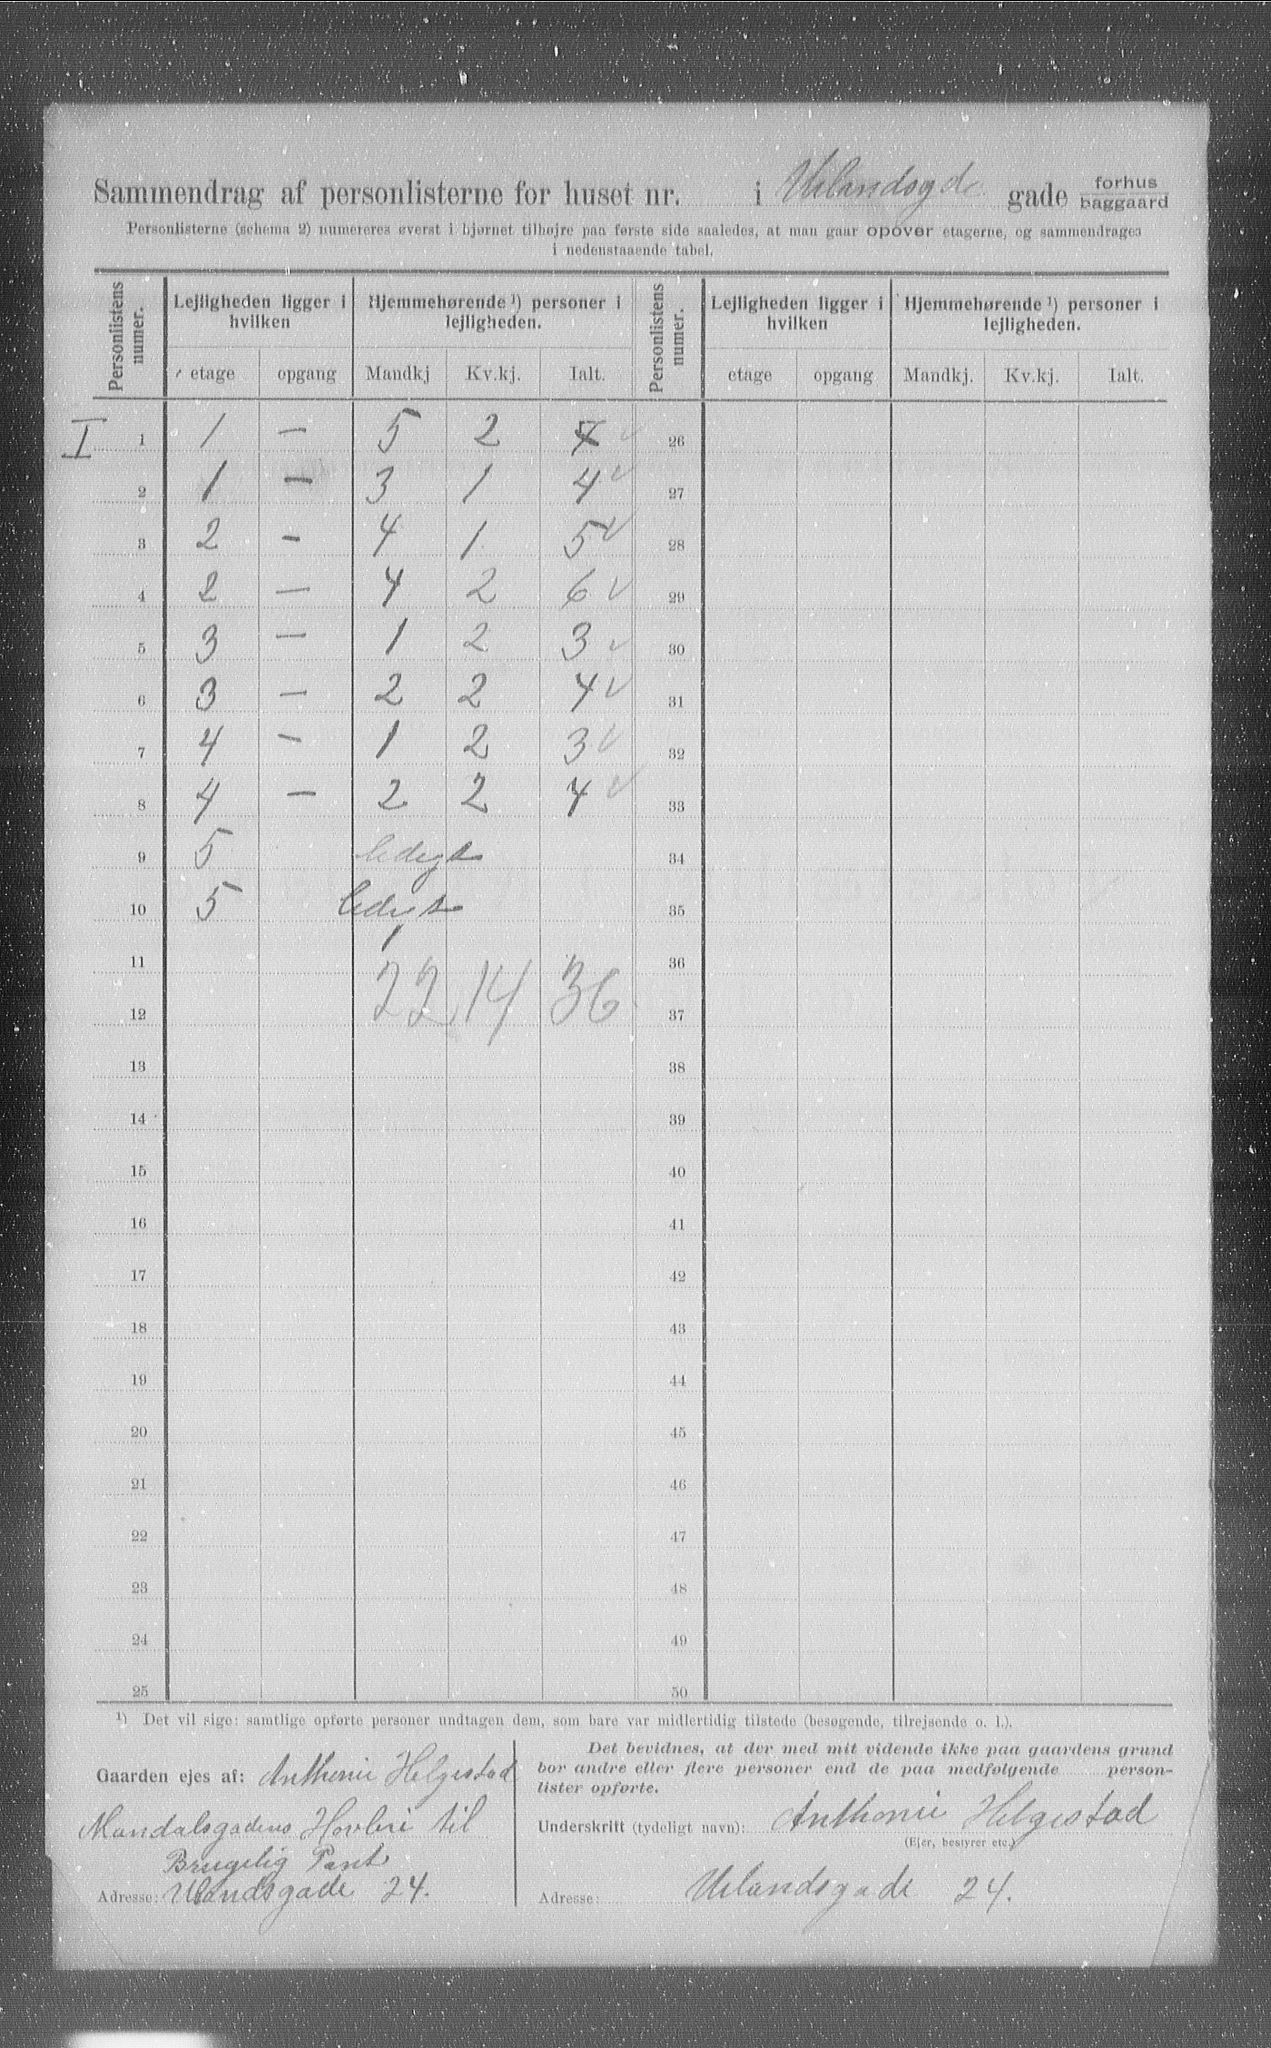 Sammendrag af personlisterne for huset nr. i Uelandsgd. gade forhus
baggaard
Personlisterne (schema 2) numereres øverst i hjørnet tilhøjre paa første side saaledes, at man gaar opover etagerne, og sammendrages
i nedenstaaende tabel.
Personlistens numer. Lejligheden ligger i hvilken Hjemmehørende ¹) personer i lejligheden. Personlistens numer. Lejligheden ligger i hvilken Hjemmehørende ¹) personer i lejligheden.
etage opgang Mandkj Kv.kj. Ialt. etage opgang Mandkj. Kv.kj. Ialt.
I 1 1 — 5 2 7 ✓ 26
2 1 — 3 1 4 ✓ 27
3 2 — 4 1 5 ✓ 28
4 2 — 4 2 6 ✓ 29
5 3 — 1 2 3 ✓ 30
6 3 — 2 2 4 ✓ 31
7 4 — 1 2 3 ✓ 32
8 4 — 2 2 4 ✓ 33
9 5 ledigt 34
10 5 ledigt 35
11 36
12 22 14 36 37
13 38
14 39
15 40
16 41
17 42
18 43
19 44
20 45
21 46
22 47
23 48
24 49
25 50
¹) Det vil sige: samtlige opførte personer undtagen dem, som bare var midlertidig tilstede (besøgende, tilrejsende o. l.).
Gaarden ejes af: Anthonie Helgestad
Mandalsgadens Hovleri til
Brugelig Pant
Adresse: Uelandsgade 24.
Det bevidnes, at der med mit vidende ikke paa gaardens grund
bor andre eller flere personer end de paa medfølgende person-
lister opførte.
Underskrift (tydeligt navn): Anthonie Helgestad
(Ejer, bestyrer etc.)
Adresse: Uelandsgade 24.